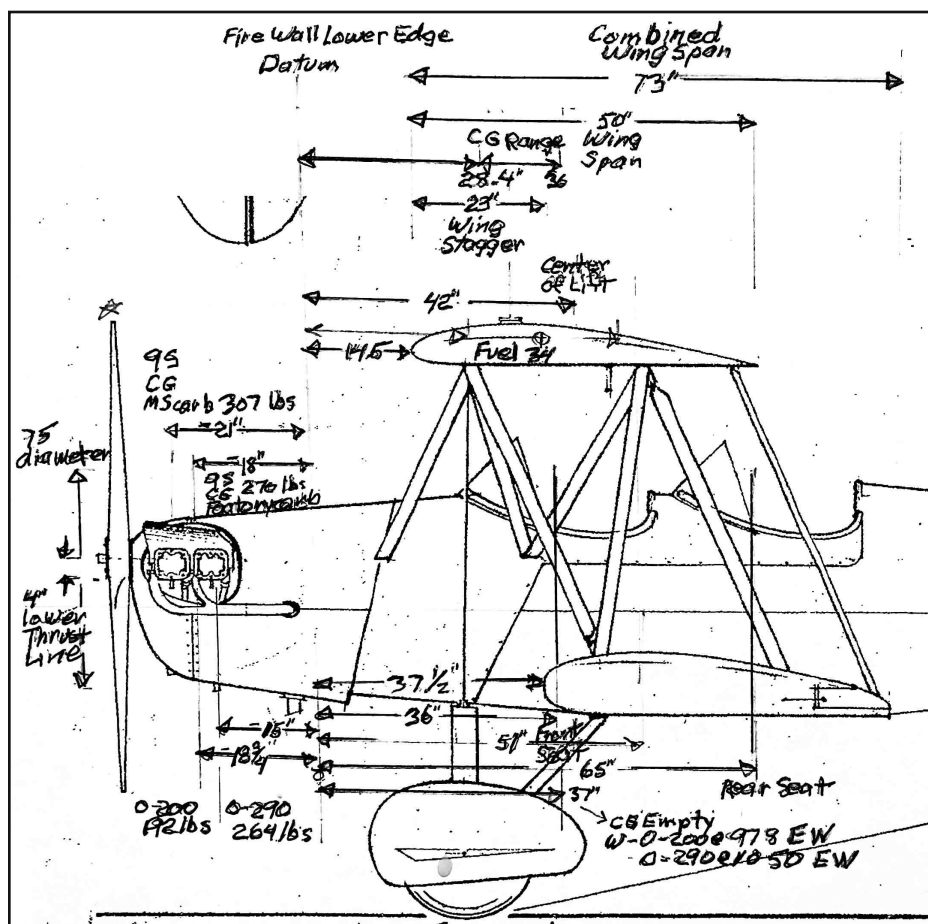 Fire Wall Lower Edge
Datum
Combined
Wing Span
73"
50"
Wing
Span
CG Range
28.4" 36
23"
Wing
Stagger
Center
of Lift
42"
14.5
Fuel 34
95
CG
MS carb 307 lbs
-21"
75
diameter
-18"
95
CG 270 lbs
Factory carb
4"
Lower
Thrust
Line
37 1/2"
36"
Front
Seat
51"
65"
Rear Seat
37"
-15"
-18 3/4"
O-200
192 lbs
O-290
264 lbs
CG Empty
W-O-200 @ 978 EW
O-290 @ 1050 EW